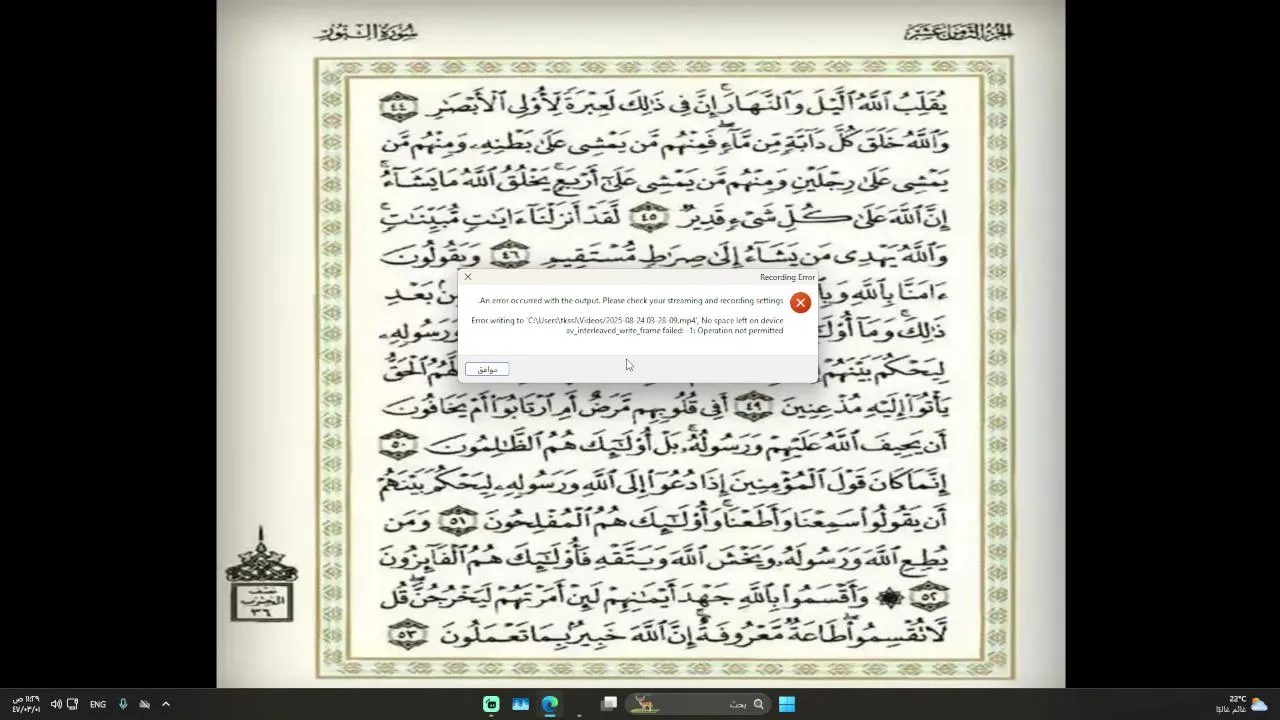 الجزء الثامن عشر
سورة النور
يُقَلِّبُ ٱللَّهُ ٱلَّيْلَ وَٱلنَّهَارَۚ إِنَّ فِى ذَٰلِكَ لَعِبْرَةً لِّأُو۟لِى ٱلْأَبْصَٰرِ ٤٤
وَٱللَّهُ خَلَقَ كُلَّ دَآبَّةٍ مِّن مَّآءٍۖ فَمِنْهُم مَّن يَمْشِى عَلَىٰ بَطْنِهِۦ وَمِنْهُم مَّن
يَمْشِى عَلَىٰ رِجْلَيْنِ وَمِنْهُم مَّن يَمْشِى عَلَىٰٓ أَرْبَعٍۚ يَخْلُقُ ٱللَّهُ مَا يَشَآءُۚ
إِنَّ ٱللَّهَ عَلَىٰ كُلِّ شَىْءٍ قَدِيرٌ ٤٥ لَّقَدْ أَنزَلْنَآ ءَايَٰتٍ مُّبَيِّنَٰتٍۚ
وَٱللَّهُ يَهْدِى مَن يَشَآءُ إِلَىٰ صِرَٰطٍ مُّسْتَقِيمٍ ٤٦ وَيَقُولُونَ
ءَامَنَّا بِٱللَّهِ بَعْدِ
ذَٰلِكَۚ وَمَآ وَرَسُولِهِۦ
لِيَحْكُمَ بَيْنَهُمْ لَّهُمُ ٱلْحَقُّ
يَأْتُوٓا۟ إِلَيْهِ مُذْعِنِينَ ٤٩ أَفِى قُلُوبِهِم مَّرَضٌ أَمِ ٱرْتَابُوٓا۟ أَمْ يَخَافُونَ
أَن يَحِيفَ ٱللَّهُ عَلَيْهِمْ وَرَسُولُهُۥۚ بَلْ أُو۟لَٰٓئِكَ هُمُ ٱلظَّٰلِمُونَ ٥٠
إِنَّمَا كَانَ قَوْلَ ٱلْمُؤْمِنِينَ إِذَا دُعُوٓا۟ إِلَى ٱللَّهِ وَرَسُولِهِۦ لِيَحْكُمَ بَيْنَهُمْ
أَن يَقُولُوا۟ سَمِعْنَا وَأَطَعْنَاۚ وَأُو۟لَٰٓئِكَ هُمُ ٱلْمُفْلِحُونَ ٥١ وَمَن
يُطِعِ ٱللَّهَ وَرَسُولَهُۥ وَيَخْشَ ٱللَّهَ وَيَتَّقْهِ فَأُو۟لَٰٓئِكَ هُمُ ٱلْفَآئِزُونَ
٥٢ وَأَقْسَمُوا۟ بِٱللَّهِ جَهْدَ أَيْمَٰنِهِمْ لَئِنْ أَمَرْتَهُمْ لَيَخْرُجُنَّۖ قُل
لَّا تُقْسِمُوا۟ۖ طَاعَةٌ مَّعْرُوفَةٌۚ إِنَّ ٱللَّهَ خَبِيرٌۢ بِمَا تَعْمَلُونَ ٥٣
نصف
الحزب
٣٦
Recording Error
.An error occurred with the output. Please check your streaming and recording settings
Error writing to 'C:\Users\tkssl\Videos/2025-08-24 03-28-09.mp4', No space left on device
av_interleaved_write_frame failed: -1: Operation not permitted
موافق
22°C
غائم غالبًا
بحث
ENG
١١:٢٩ ص
٤٧/٠٣/٠١